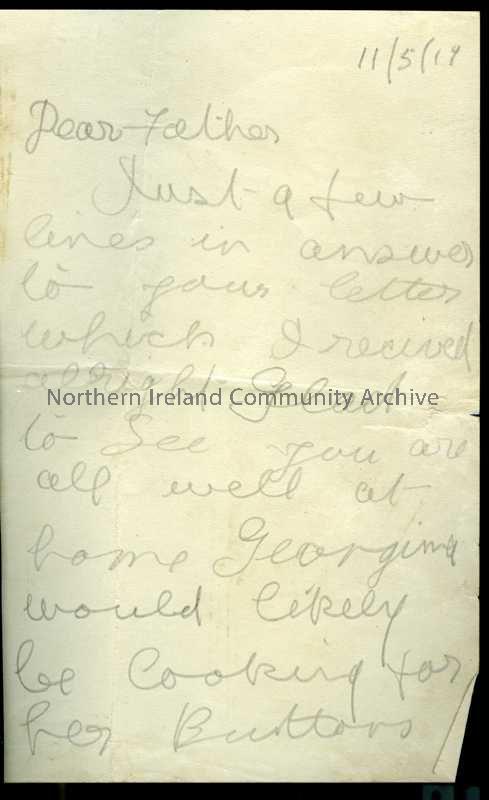 11/5/19
Dear Father
Just a few
lines in answer
to your letter
which I recived
alright Glad
Northern Ireland Community Archive
to See you are
all well at
home Georgina
would likely
be Cooking for
her Buttons